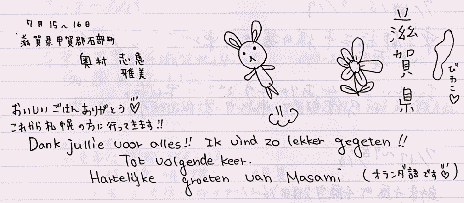 7月15〜16日
滋賀県甲賀郡石部町
奥村 志恵
雅美
滋賀県
びわこ
おいしいごはんありがとう♡
これから札幌の方に行ってきます!!
Dank jullie voor alles!! Ik vind zo lekker gegeten!!
Tot volgende keer.
Hartelijke groeten van Masami (オランダ語です♡)